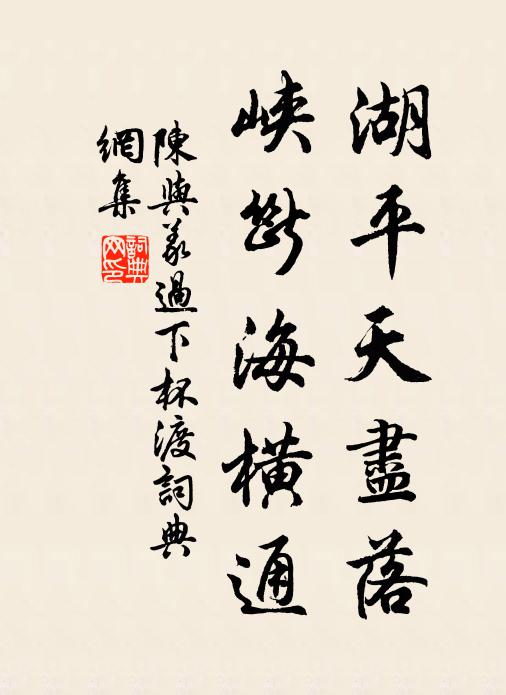 湖平天盡落
峽斷海橫通
陳與義過下杯渡詞典
網集
詞典
网印